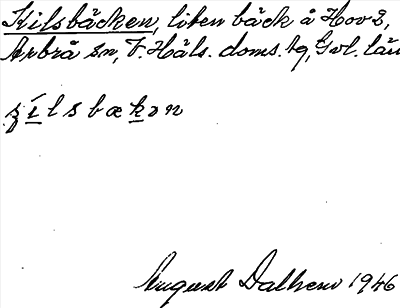 Kilsbäcken, liten bäck å Hov 3,
Arbrå sn, V. Häls. doms. tg, Gvl. län
kílsbækən
August Dalhem 1946